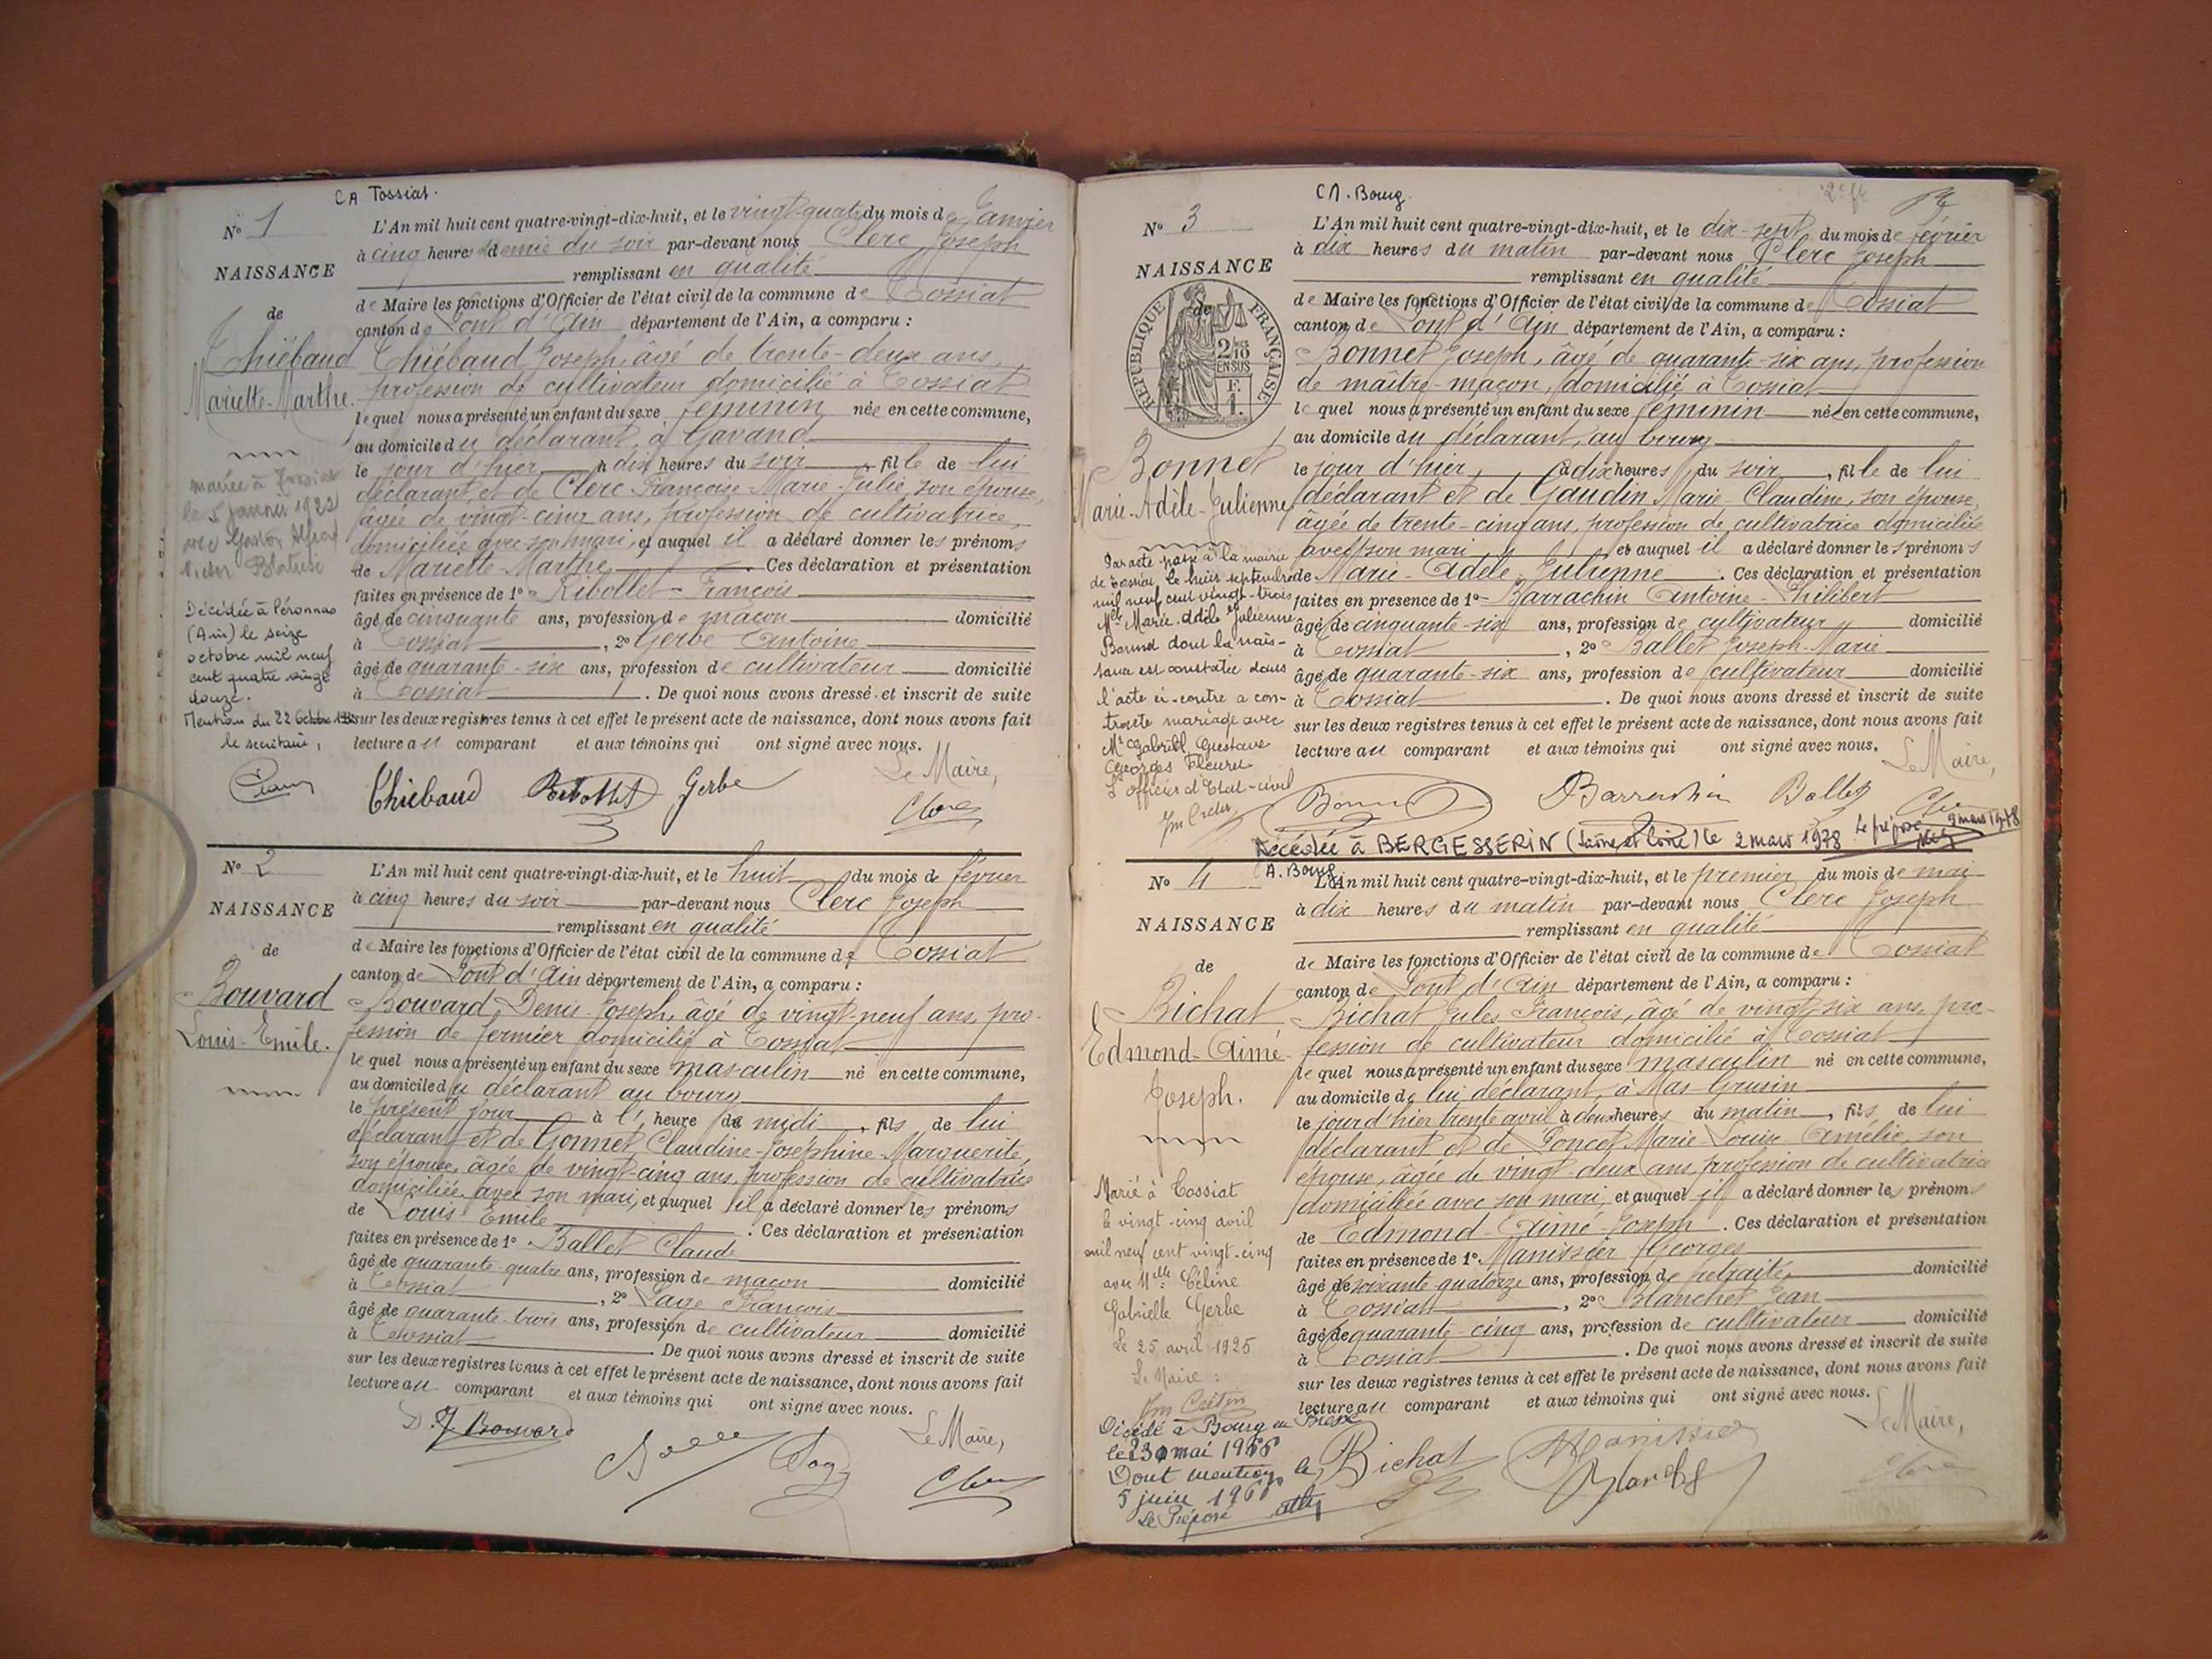 CA Tossiat.
N° 1
NAISSANCE
de
Thiébaud
Mariette-Marthe.
mariée à Tossiat
le 5 janvier 1922
avec Gaston Alfred
Victor
Décédée à Péronnas
(Ain) le seize
octobre mil neuf
cent quatre vingt
douze.
Mention du 22 Octobre
le secrétaire,
L'An mil huit cent quatre-vingt-dix-huit, et le vingt-quatre du mois de Janvier
à cinq heures demie du soir par-devant nous Clerc Joseph
remplissant en qualité
de Maire les fonctions d'Officier de l'état civil de la commune de Tossiat
canton de Pont d'Ain département de l'Ain, a comparu :
Thiébaud Joseph, âgé de trente-deux ans,
profession de cultivateur domicilié à Tossiat
lequel nous a présenté un enfant du sexe féminin née en cette commune,
au domicile du déclarant, à Gavand
le jour d'hier à dix heures du soir, fille de lui
déclarant et de Clerc Françoise-Marie-Julie, son épouse,
âgée de vingt-cinq ans, profession de cultivatrice,
domiciliée avec son mari, et auquel il a déclaré donner les prénoms
de Mariette-Marthe. Ces déclaration et présentation
faites en présence de 1° Ribollet François
âgé de cinquante ans, profession de maçon domicilié
à Tossiat, 2° Gerbe Antoine
âgé de quarante-six ans, profession de cultivateur domicilié
à Tossiat. De quoi nous avons dressé et inscrit de suite
sur les deux registres tenus à cet effet le présent acte de naissance, dont nous avons fait
lecture au comparant et aux témoins qui ont signé avec nous.
Le Maire,
Thiebaud Gerbe
Clerc
N° 2
NAISSANCE
de
Bouvard
Louis-Emile.
L'An mil huit cent quatre-vingt-dix-huit, et le huit du mois de février
à cinq heures du soir par-devant nous Clerc Joseph
remplissant en qualité
de Maire les fonctions d'Officier de l'état civil de la commune de Tossiat
canton de Pont d'Ain département de l'Ain, a comparu :
Bouvard Denis-Joseph, âgé de vingt-neuf ans, pro-
fession de fermier domicilié à Tossiat
lequel nous a présenté un enfant du sexe masculin né en cette commune,
au domicile du déclarant au bourg
le présent jour à l', heure de midi, fils de lui
déclarant et de Gonnet Claudine-Joséphine-Marguerite,
son épouse, âgée de vingt-cinq ans, profession de cultivatrice
domiciliée avec son mari, et auquel il a déclaré donner les prénoms
de Louis Emile. Ces déclaration et présentation
faites en présence de 1° Ballet Claude
âgé de quarante-quatre ans, profession de maçon domicilié
à Tossiat, 2° Page François
âgé de quarante-trois ans, profession de cultivateur domicilié
à Tossiat. De quoi nous avons dressé et inscrit de suite
sur les deux registres tenus à cet effet le présent acte de naissance, dont nous avons fait
lecture au comparant et aux témoins qui ont signé avec nous.
Le Maire,
D. J. Bouvard
Clerc
CA. Bourg.
N° 3
NAISSANCE
de
RÉPUBLIQUE FRANÇAISE
2/10 EN SUS
Bonnet
Marie-Adèle-Julienne
Par acte passé à la mairie
de Tossiat le huit septembre
mil neuf cent vingt-trois
Melle Marie Adèle Julienne
Bonnet dont la nais-
sance est constatée dans
l'acte ci-contre a con-
tracté mariage avec
Mr Gabriel Gustave
Georges Fleuret
L'officier d'Etat-civil
L'An mil huit cent quatre-vingt-dix-huit, et le dix-sept du mois de février
à dix heures du matin par-devant nous Clerc Joseph
remplissant en qualité
de Maire les fonctions d'Officier de l'état civil de la commune de Tossiat
canton de Pont d'Ain département de l'Ain, a comparu :
Bonnet Joseph, âgé de quarante-six ans, profession
de maître-maçon, domicilié à Tossiat
lequel nous a présenté un enfant du sexe féminin née en cette commune,
au domicile du déclarant, au bourg
le jour d'hier, à dix heures du soir, fille de lui
déclarant et de Gaudin Marie-Claudine, son épouse,
âgée de trente-cinq ans, profession de cultivatrice domiciliée
avec son mari et auquel il a déclaré donner les prénoms
de Marie-Adèle-Julienne. Ces déclaration et présentation
faites en présence de 1° Barrachin Antoine-Philibert
âgé de cinquante-six ans, profession de cultivateur domicilié
à Tossiat, 2° Ballet Joseph-Marie
âgé de quarante-six ans, profession de cultivateur domicilié
à Tossiat. De quoi nous avons dressé et inscrit de suite
sur les deux registres tenus à cet effet le présent acte de naissance, dont nous avons fait
lecture au comparant et aux témoins qui ont signé avec nous.
Le Maire,
Bonnet Barrachin Ballet Clerc
Décédée à BERGESSERIN (Saône et Loire) le 2 mars 1978 Le préposé 9 mars 1978
A. Bourg
N° 4
NAISSANCE
de
Bichat
Edmond-Aimé-
Joseph.
Marié à Tossiat
le vingt-cinq avril
mil neuf cent vingt-cinq
avec Melle Céline
Gabrielle Gerbe
Le 25 avril 1925
Le Maire :
Décédé à Bourg en Bresse
le 23 mai
Dont mention le
5 juin
Le Préposé
L'An mil huit cent quatre-vingt-dix-huit, et le premier du mois de mai
à dix heures du matin par-devant nous Clerc Joseph
remplissant en qualité
de Maire les fonctions d'Officier de l'état civil de la commune de Tossiat
canton de Pont d'Ain département de l'Ain, a comparu :
Bichat Jules François, âgé de vingt-six ans, pro-
fession de cultivateur domicilié à Tossiat
lequel nous a présenté un enfant du sexe masculin né en cette commune,
au domicile de lui déclarant, à Mas Grusin
le jour d'hier trente avril à deux heures du matin, fils de lui
déclarant et de Poncet Marie-Louise-Amélie, son
épouse, âgée de vingt-deux ans, profession de cultivatrice
domiciliée avec son mari, et auquel il a déclaré donner les prénoms
de Edmond-Aimé-Joseph. Ces déclaration et présentation
faites en présence de 1° Manissier Georges
âgé de soixante quatorze ans, profession de retraité, domicilié
à Tossiat, 2° Blanchet Jean
âgé de quarante-cinq ans, profession de cultivateur domicilié
à Tossiat. De quoi nous avons dressé et inscrit de suite
sur les deux registres tenus à cet effet le présent acte de naissance, dont nous avons fait
lecture au comparant et aux témoins qui ont signé avec nous.
Le Maire,
Bichat Manissier
Clerc